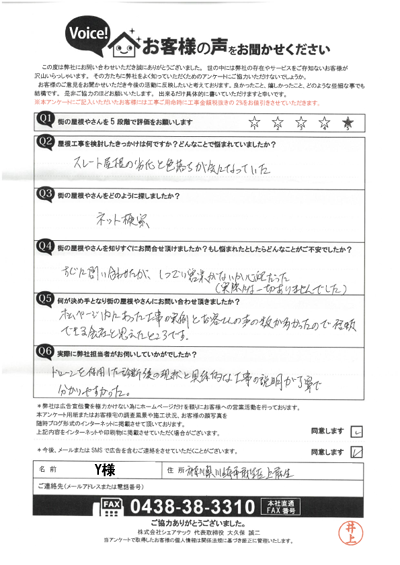 Voice!
お客様の声をお聞かせください
この度は弊社にお問い合わせいただき誠にありがとうございました。世の中には弊社の存在やサービスをご存知ないお客様が
沢山いらっしゃいます。その方たちに弊社をよく知っていただくためのアンケートにご協力いただけないでしょうか。
お客様のご意見をお聞かせいただき今後の活動に反映したいと考えております。良かったこと、嬉しかったこと、どのような些細な事でも
結構です。是非ご協力のほどお願いいたします。出来るだけ具体的に書いていただけますと幸いです。
※本アンケートにご記入いただいたお客様には工事ご用命時に工事金額税抜きの2%をお値引きさせていただきます。
Q1 街の屋根やさんを5段階で評価をお願いします ☆ ☆ ☆ ☆ ★
Q2 屋根工事を検討したきっかけは何ですか?どんなことで悩まれていましたか?
スレート屋根の劣化と色落ちが気になっていた
Q3 街の屋根やさんをどのように探しましたか?
ネット検索
Q4 街の屋根やさんを知りすぐにお問合せ頂けましたか?もし悩まれたとしたらどんなことがご不安でしたか?
すぐに問い合わせたが、しつこい営業がないか心配だった
(実際は一切ありませんでした)
Q5 何が決め手となり街の屋根やさんにお問い合わせ頂きましたか?
ホームページ内にあった工事の実例とお客さんの声の数が多かったので信頼
できる会社と思えたところです。
Q6 実際に弊社担当者がお伺いしていかがでしたか?
ドローンを使用した診断後の現状と具体的な工事の説明が丁寧で
分かりやすかった。
※弊社は広告宣伝費を極力かけない為にホームページだけを頼りにお客様への営業活動を行っております。
本アンケート用紙またはお客様宅の調査風景や施工状況、お客様の顔写真を
随時ブログ形式のインターネットに掲載させて頂いております。
上記内容をインターネットや印刷物に掲載させていただく場合がございます。 同意します
※今後、メールまたはSMSで広告を含むご連絡をさせていただくことがございます。 同意します
名前 Y様 住所 神奈川県川崎市麻生区上麻生
ご連絡先(メールアドレスまたは電話番号)
FAX 0438-38-3310 本社直通 FAX番号
ご協力ありがとうございました。
株式会社シェアテック 代表取締役 大久保 誠二
当アンケートで取得したお客様の個人情報は関係法規に基づき厳正に管理いたします。
井上